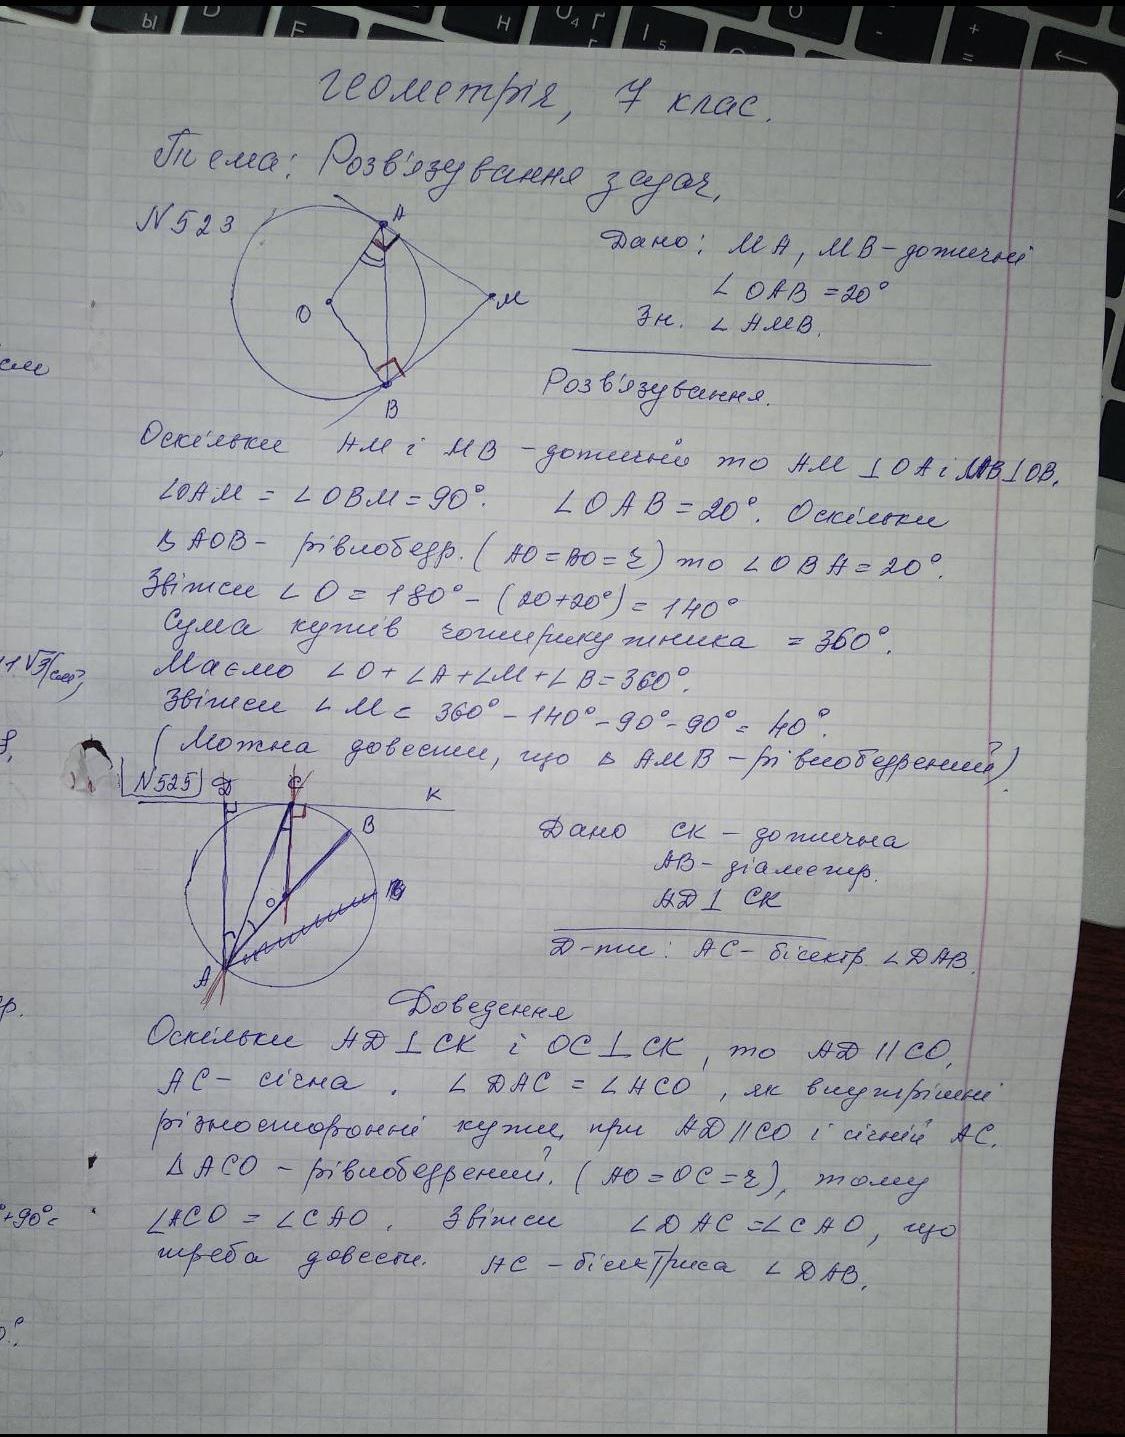 геометрія, 7 клас.
Тема: Розв'язування задач.
N523
A
O
M
B
Дано: MA, MB - дотичні
∠OAB = 20°
Зн. ∠AMB.
Розв'язування.
Оскільки AM і MB - дотичні то AM ⊥ OA і MB ⊥ OB.
∠OAM = ∠OBM = 90°. ∠OAB = 20°. Оскільки
Δ AOB - рівнобедр. (AO = BO = r) то ∠OBA = 20°.
Звідки ∠O = 180° - (20+20°) = 140°
Сума кутів чотирикутника = 360°.
Маємо ∠O + ∠A + ∠M + ∠B = 360°.
Звідки ∠M = 360° - 140° - 90° - 90° = 40°.
(Можна довести, що Δ AMB - рівнобедрений)
N525
D
C
K
B
O
A
Дано CK - дотична
AB - діаметр.
AD ⊥ CK
Д-ти: AC - бісектр. ∠DAB.
Доведення
Оскільки AD ⊥ CK і OC ⊥ CK, то AD || CO,
AC - січна. ∠DAC = ∠ACO, як внутрішні
різносторонні кути при AD || CO і січній AC.
ΔACO - рівнобедрений. (AO = OC = r), тому
∠ACO = ∠CAO. Звідки ∠DAC = ∠CAO, що
треба довести. AC - бісектриса ∠DAB.